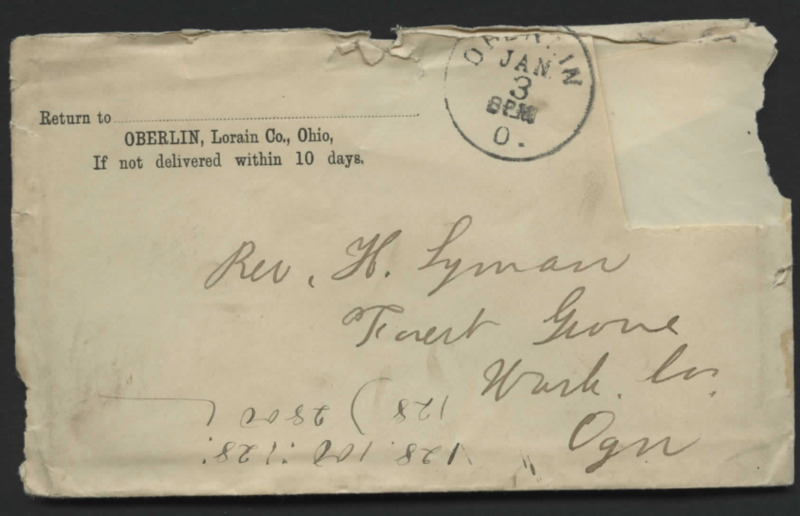 OBERLIN
JAN.
3
8PM
O.
Return to
OBERLIN, Lorain Co., Ohio,
If not delivered within 10 days.
Rev. H. Lyman
Forest Grove
Wash. Co.
Ogn
128 ) 2800 (
128. 100 :: 28.